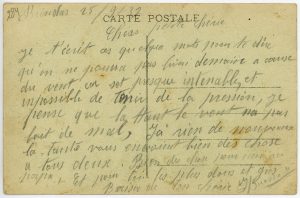 25/9/32
CARTE POSTALE
chère
je t'écrit ces quelques mots pour te dire
qu'on ne pourra pas bien demain a cause
du vent on est presque intenable et
impossible de tenir de la pression, je
pense que la haut le vent na pas
fait de mal, J'ai rien de nouveau
la tante vous envoient bien des chose
a tous deux. Bien des chose pour
et pour toi les plus doux et gros
Baiser de ton